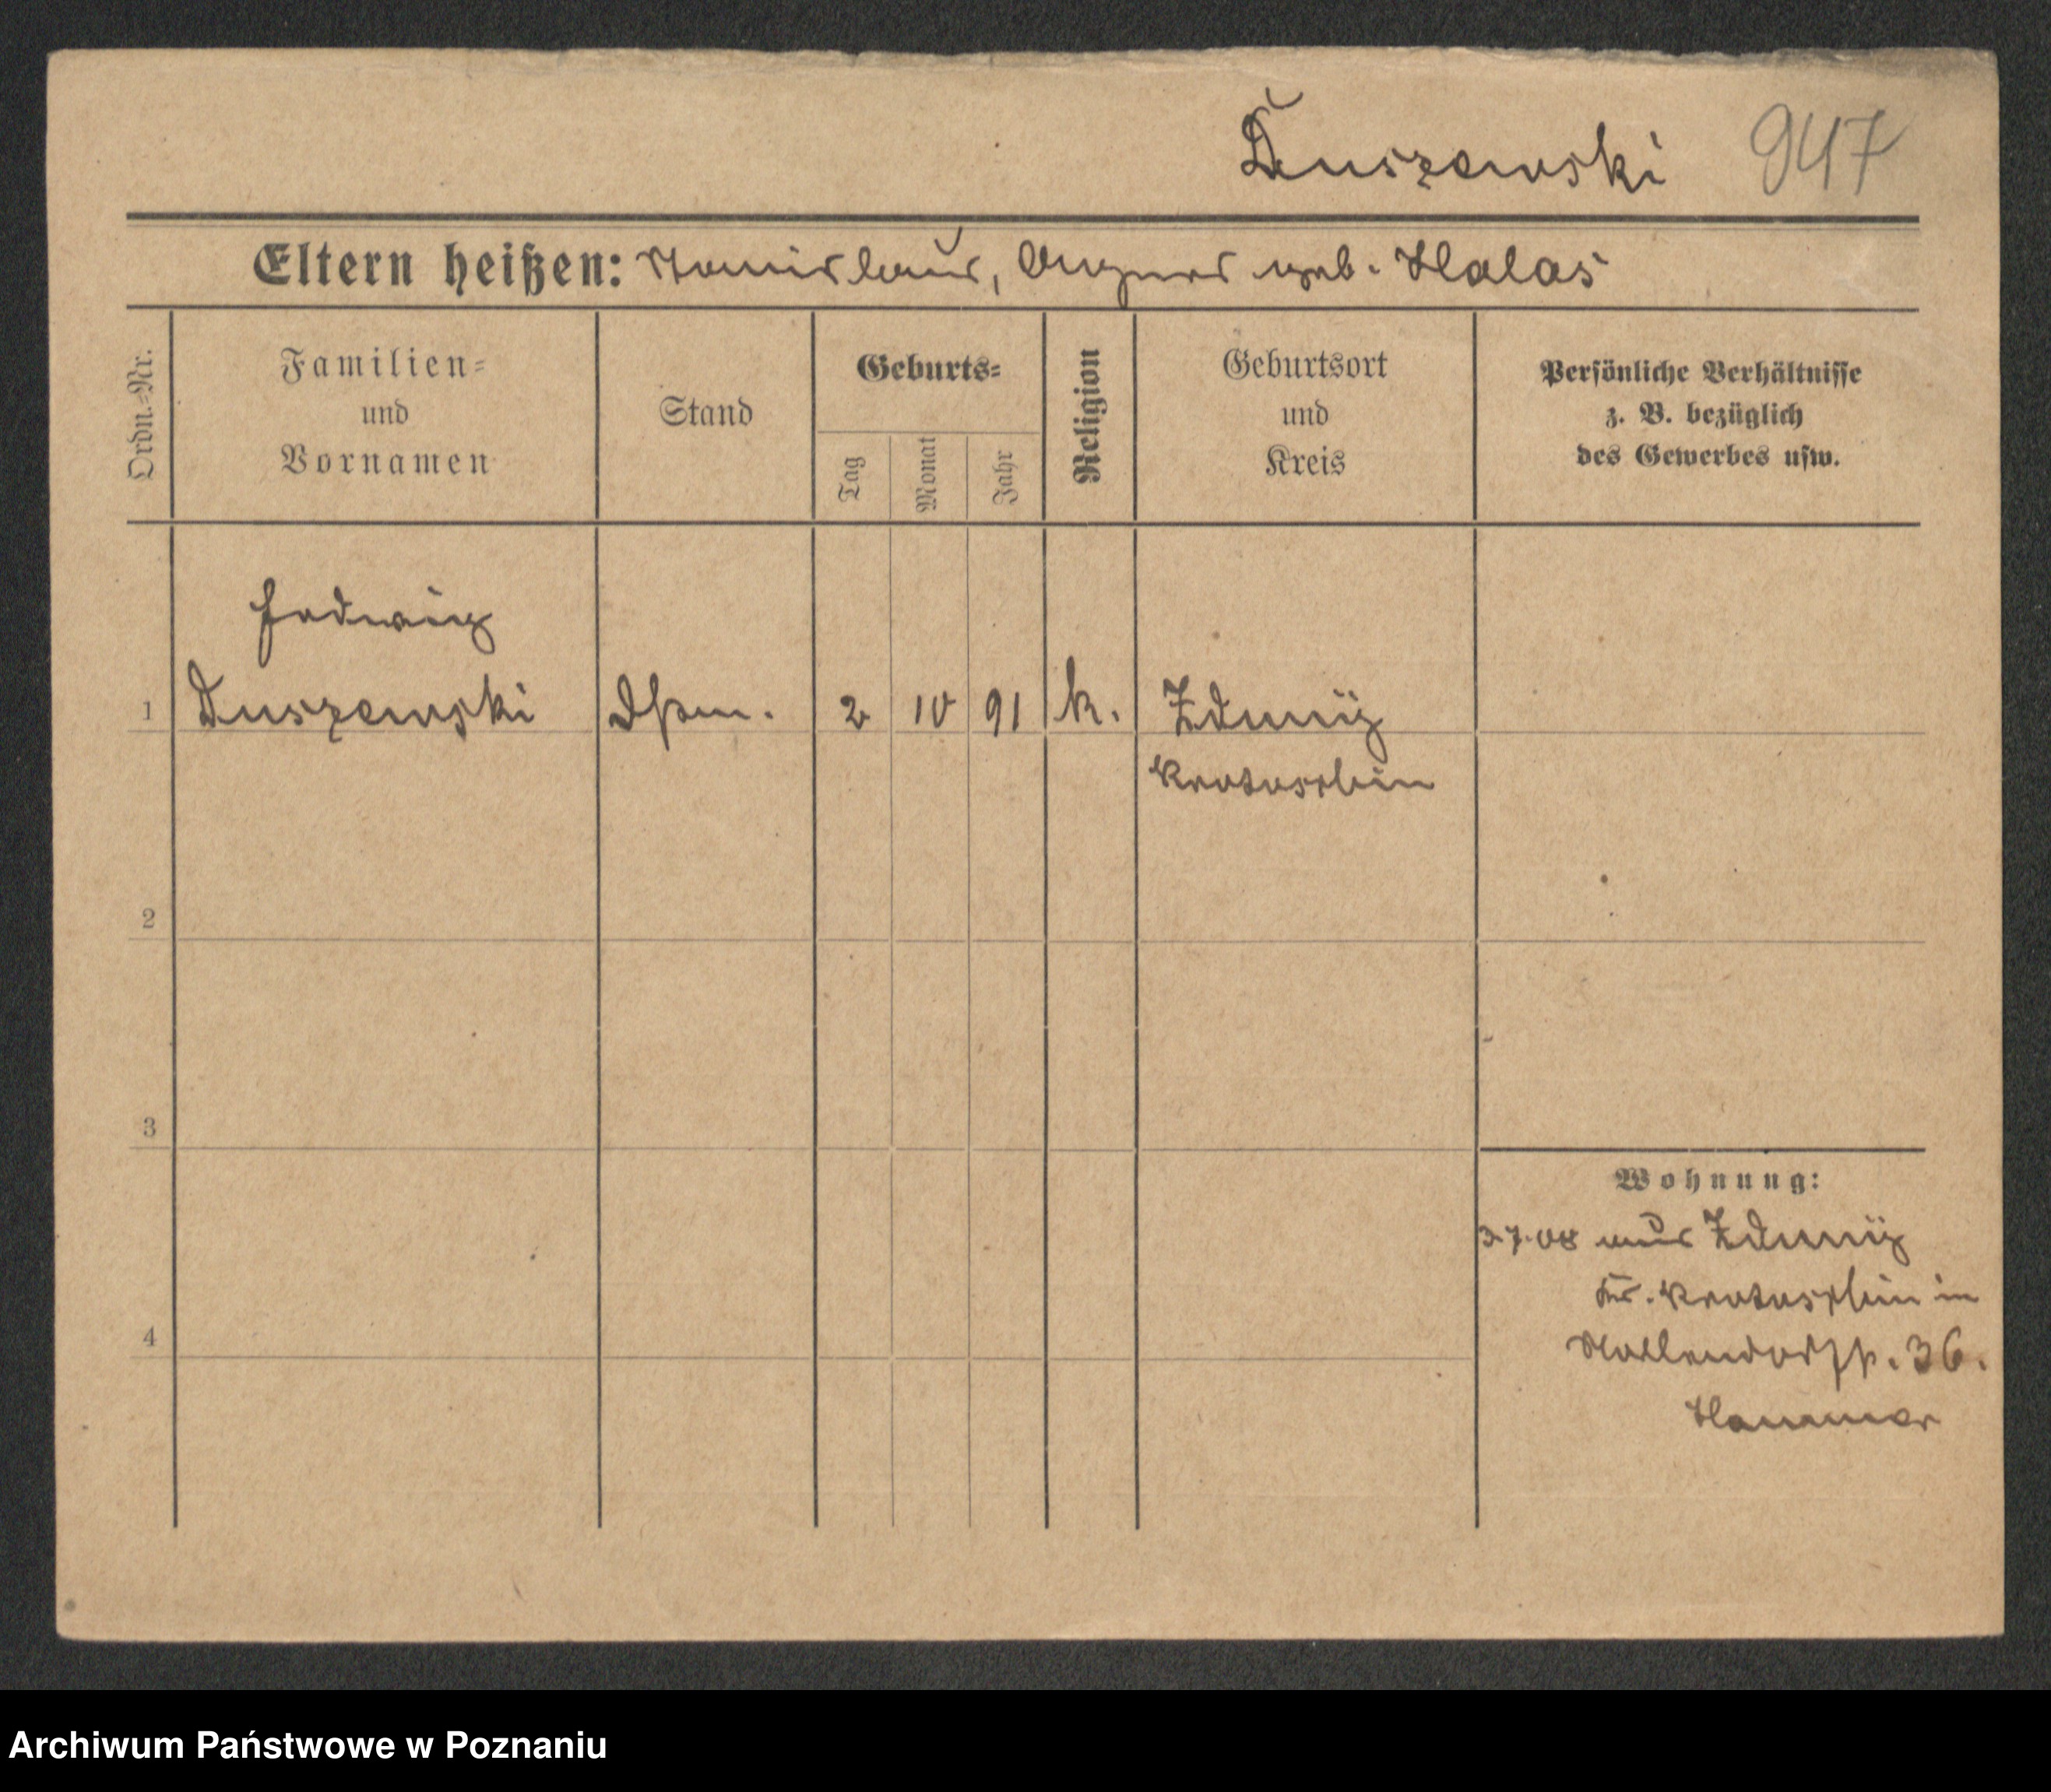 Duszewski 947
Eltern heißen: Stanislaus, geb. Halas
Ordn.=Nr.
Familien=
und
Vornamen
Stand
Geburts=
Tag
Monat
Jahr
Religion
Geburtsort
und
Kreis
Persönliche Verhältnisse
z. B. bezüglich
des Gewerbes usw.
Hedwig
1 Duszewski Dstm. 2 10 91 k. Zduny
Krotoschin
2
3
4
Wohnung:
3.7.08 aus Zduny
Kr. Krotoschin in
Nollendorfstr. 36.
Hammer
Archiwum Państwowe w Poznaniu